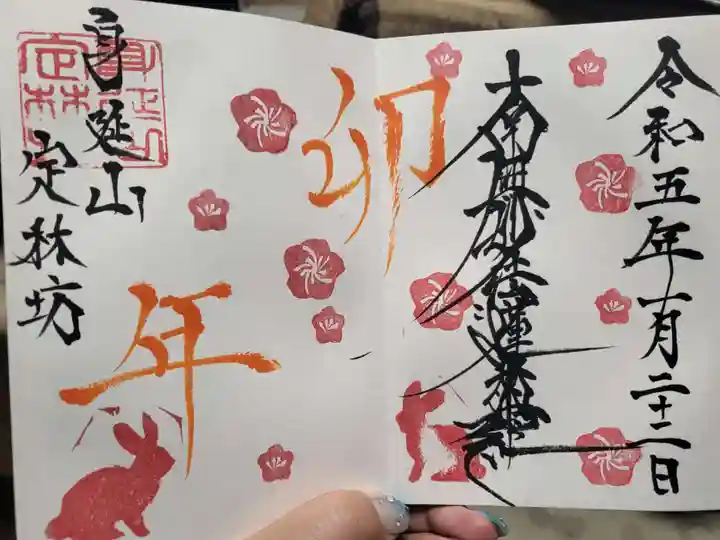 令和五年一月二十二日
南無妙法蓮華経
卯年
身延山
定林坊